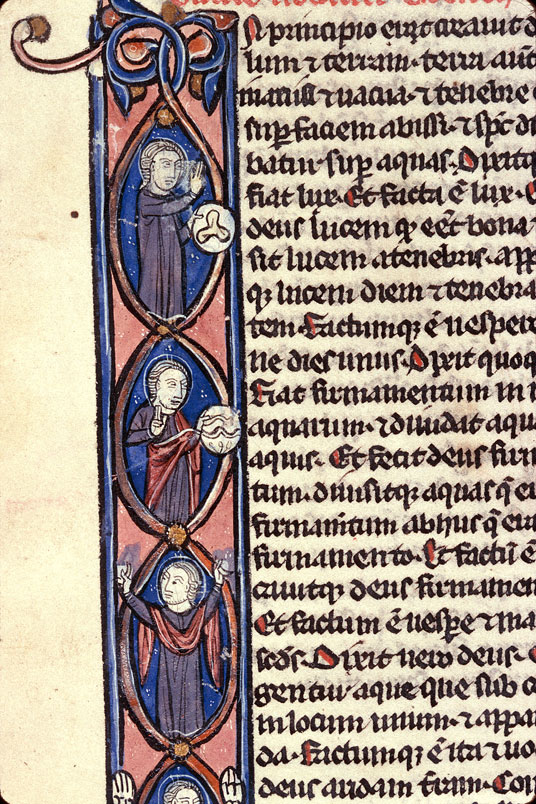 N principio creavit d
lum ⁊ terram. terra aut
inanis ⁊ vacua. ⁊ tenebre
sup faciem abissi. ⁊ spc d
batur sup aquas. Dixitq
fiat lux. Et facta ē lux.
deus lucem q eet bona
sit lucem a tenebris. app
q lucem diem ⁊ tenebra
tem. Factumq ē uespere
ne dies unus. Dixit quoq
Fiat firmamentum in
aquarum. ⁊ diuidat aqu
aquis. Et fecit deus firm
tum. diuisitq aquas q̄ e
firmamtum ab hus q̄ era
firmamento. Et factū ē
cauitq deus firmamen
Et factum ē uespe ⁊ ma
scds. Dixit uero deus.
gentur aque que sub c
in locum unum. ⁊ appa
da. Factumq ē ita ⁊ uo
deus aridam t̄ram. Con